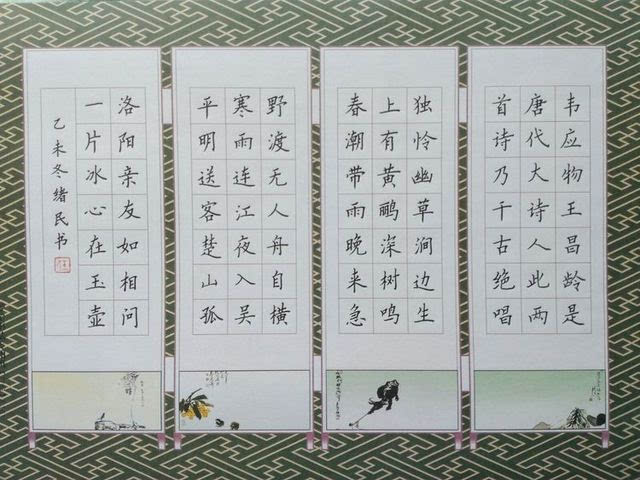 韦应物王昌龄是
唐代大诗人此两
首诗乃千古绝唱
独怜幽草涧边生
上有黄鹂深树鸣
春潮带雨晚来急
野渡无人舟自横
寒雨连江夜入吴
平明送客楚山孤
洛阳亲友如相问
一片冰心在玉壶
乙未冬绪民书